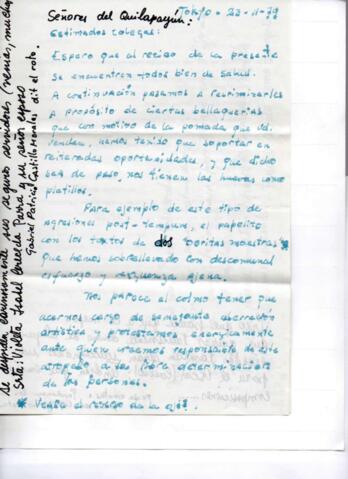 Tokyo - 23-11-79
Señores del Quilapayún:
Estimados colegas:
Espero que al recibo de la presente
se encuentren todos bien de salud.
A continuación pasamos a recriminarles
A propósito de ciertas bellaquerías
que con motivo de la pomada que Ud.
venden, hemos tenido que soportar en
reiteradas oportunidades, y que dicho
sea de paso, nos tienen las huevas como
platillos.
Para ejemplo de este tipo de
agresiones post-tempum, el papelito
con los textos de dos obritas maestras *
que hemos sobrellevado con descomunal
esfuerzo y vergüenza ajena.
Nos parece el colmo tener que
acernos cargo de semejante aberración
artística y protestamos enérgicamente
ante quien creemos responsable de este
atropello a la libre determinación
de las personas.
* Véase el reverso de la
Se despiden
seguros servidores,
Isabel
Parra y su señor esposo
Gabriel Patricio Castillo Morales